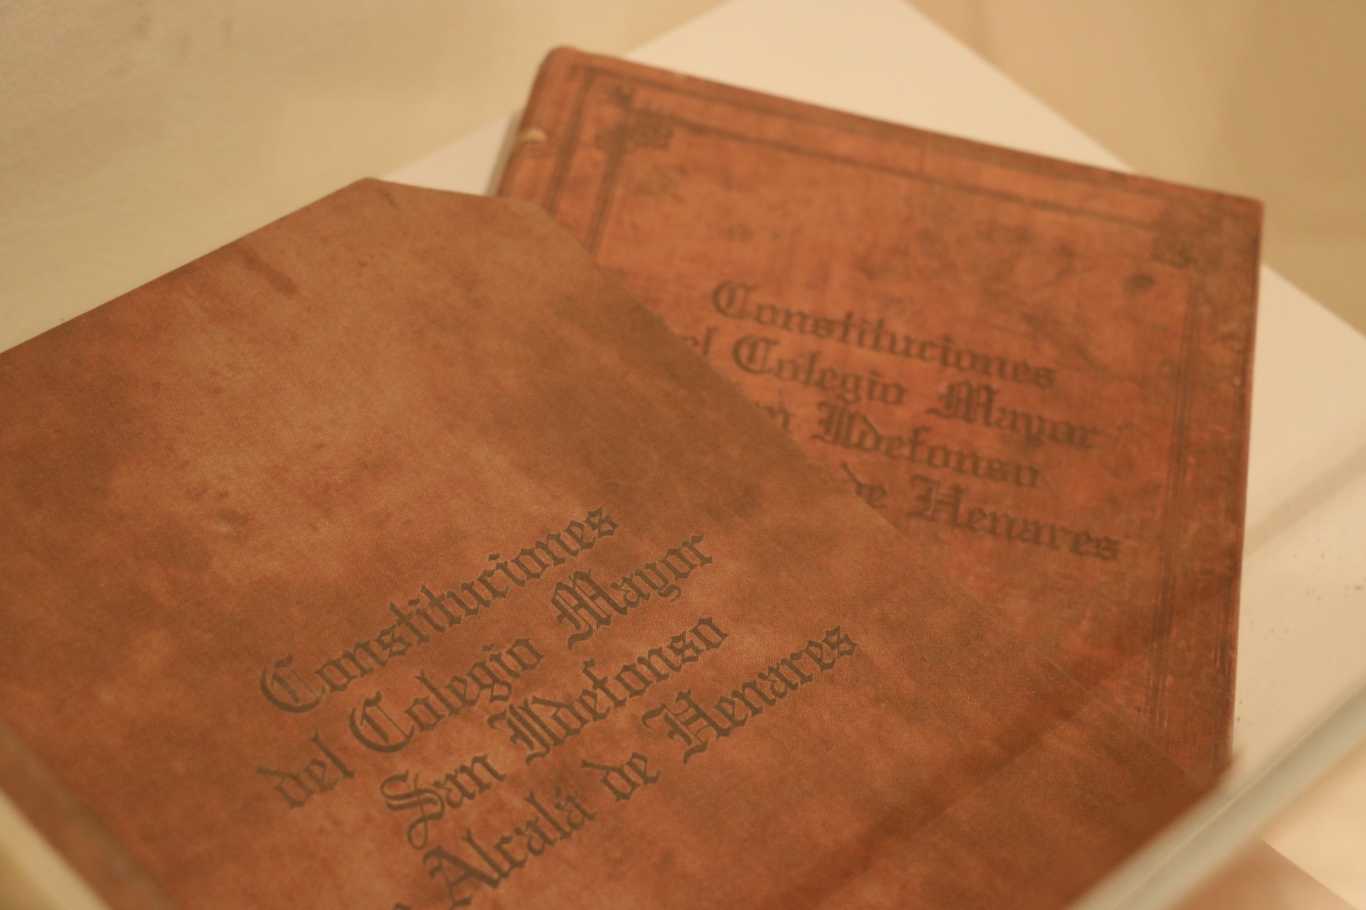 Constituciones
del Colegio Mayor
San Ildefonso
Alcalá de Henares
Constituciones
el Colegio Mayor
Ildefonso
de Henares